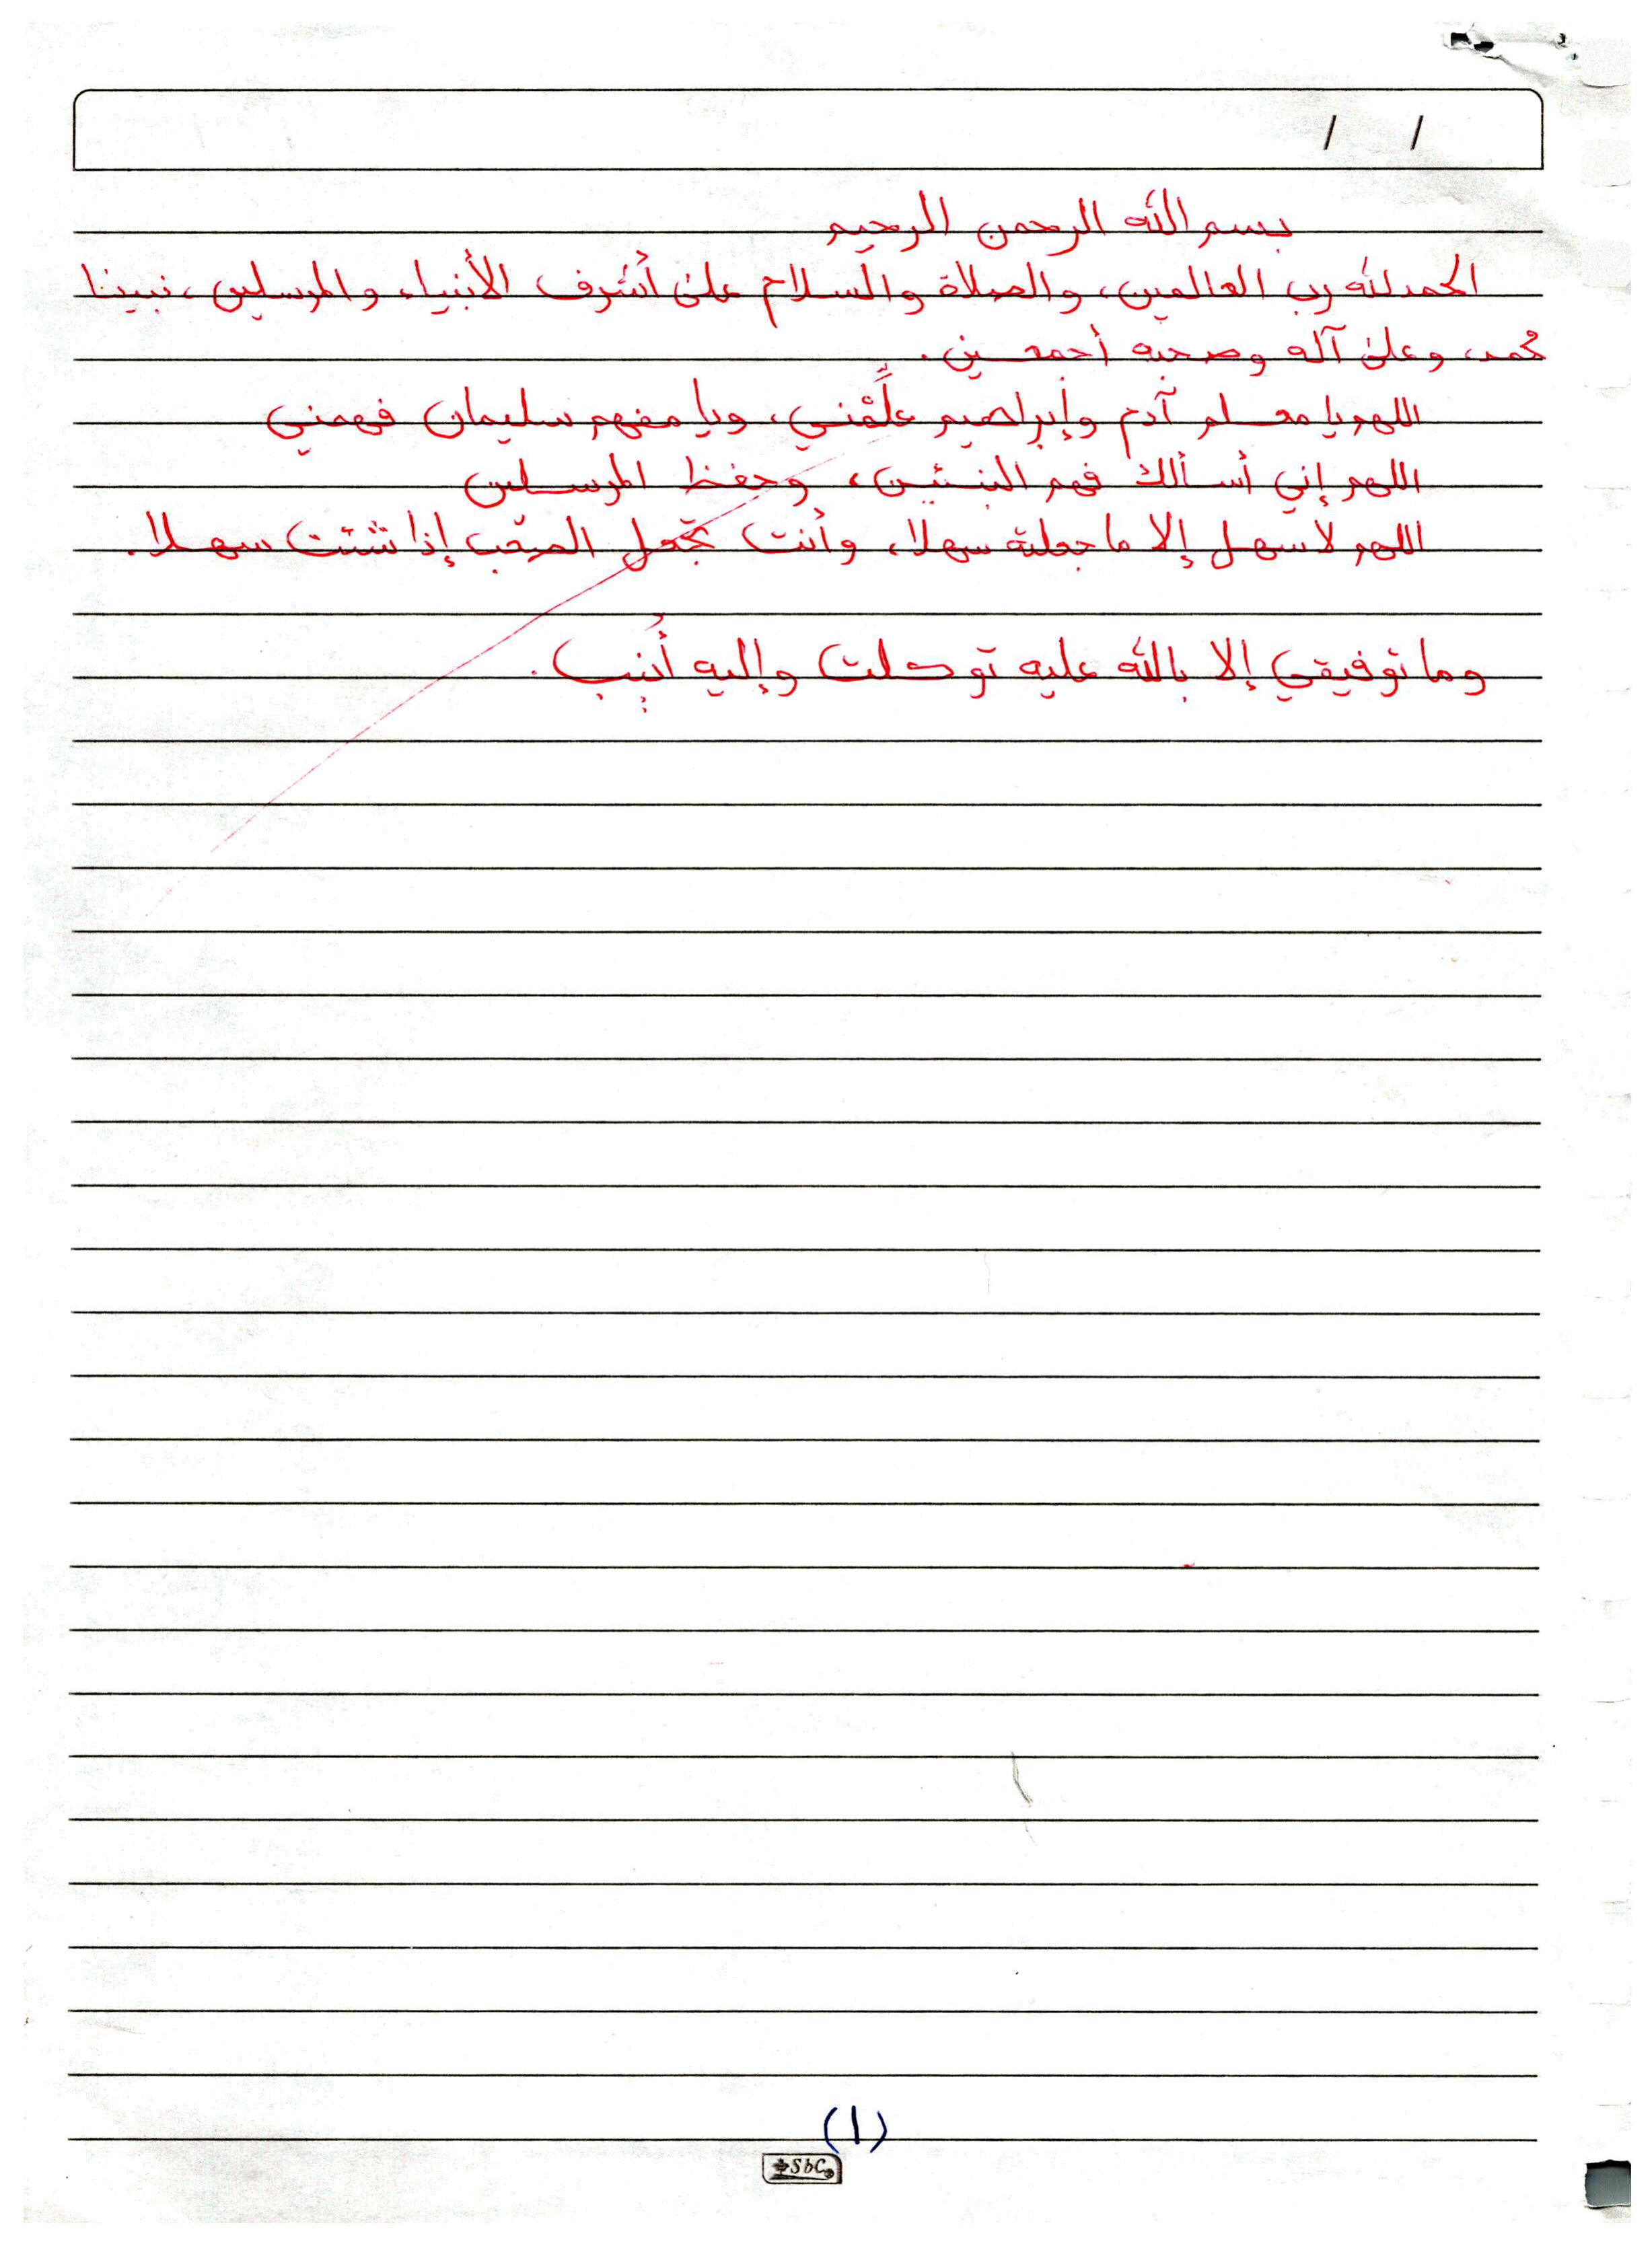 / /
بسم الله الرحمن الرحيم
الحمد لله رب العالمين، والصلاة والسلام على أشرف الأنبياء والمرسلين، نبينا
محمد، وعلى آله وصحبه أجمعين.
اللهم يا معلم آدم وإبراهيم علِّمْني، ويا مفهم سليمان فهمني
اللهم إني أسألك فهم النبيين، وحفظ المرسلين
اللهم لا سهل إلا ما جعلته سهلا، وأنت تجعل الصعب إذا شئت سهلا.
وما توفيقي إلا بالله عليه توكلت وإليه أُنِيب.
(١)
SbC